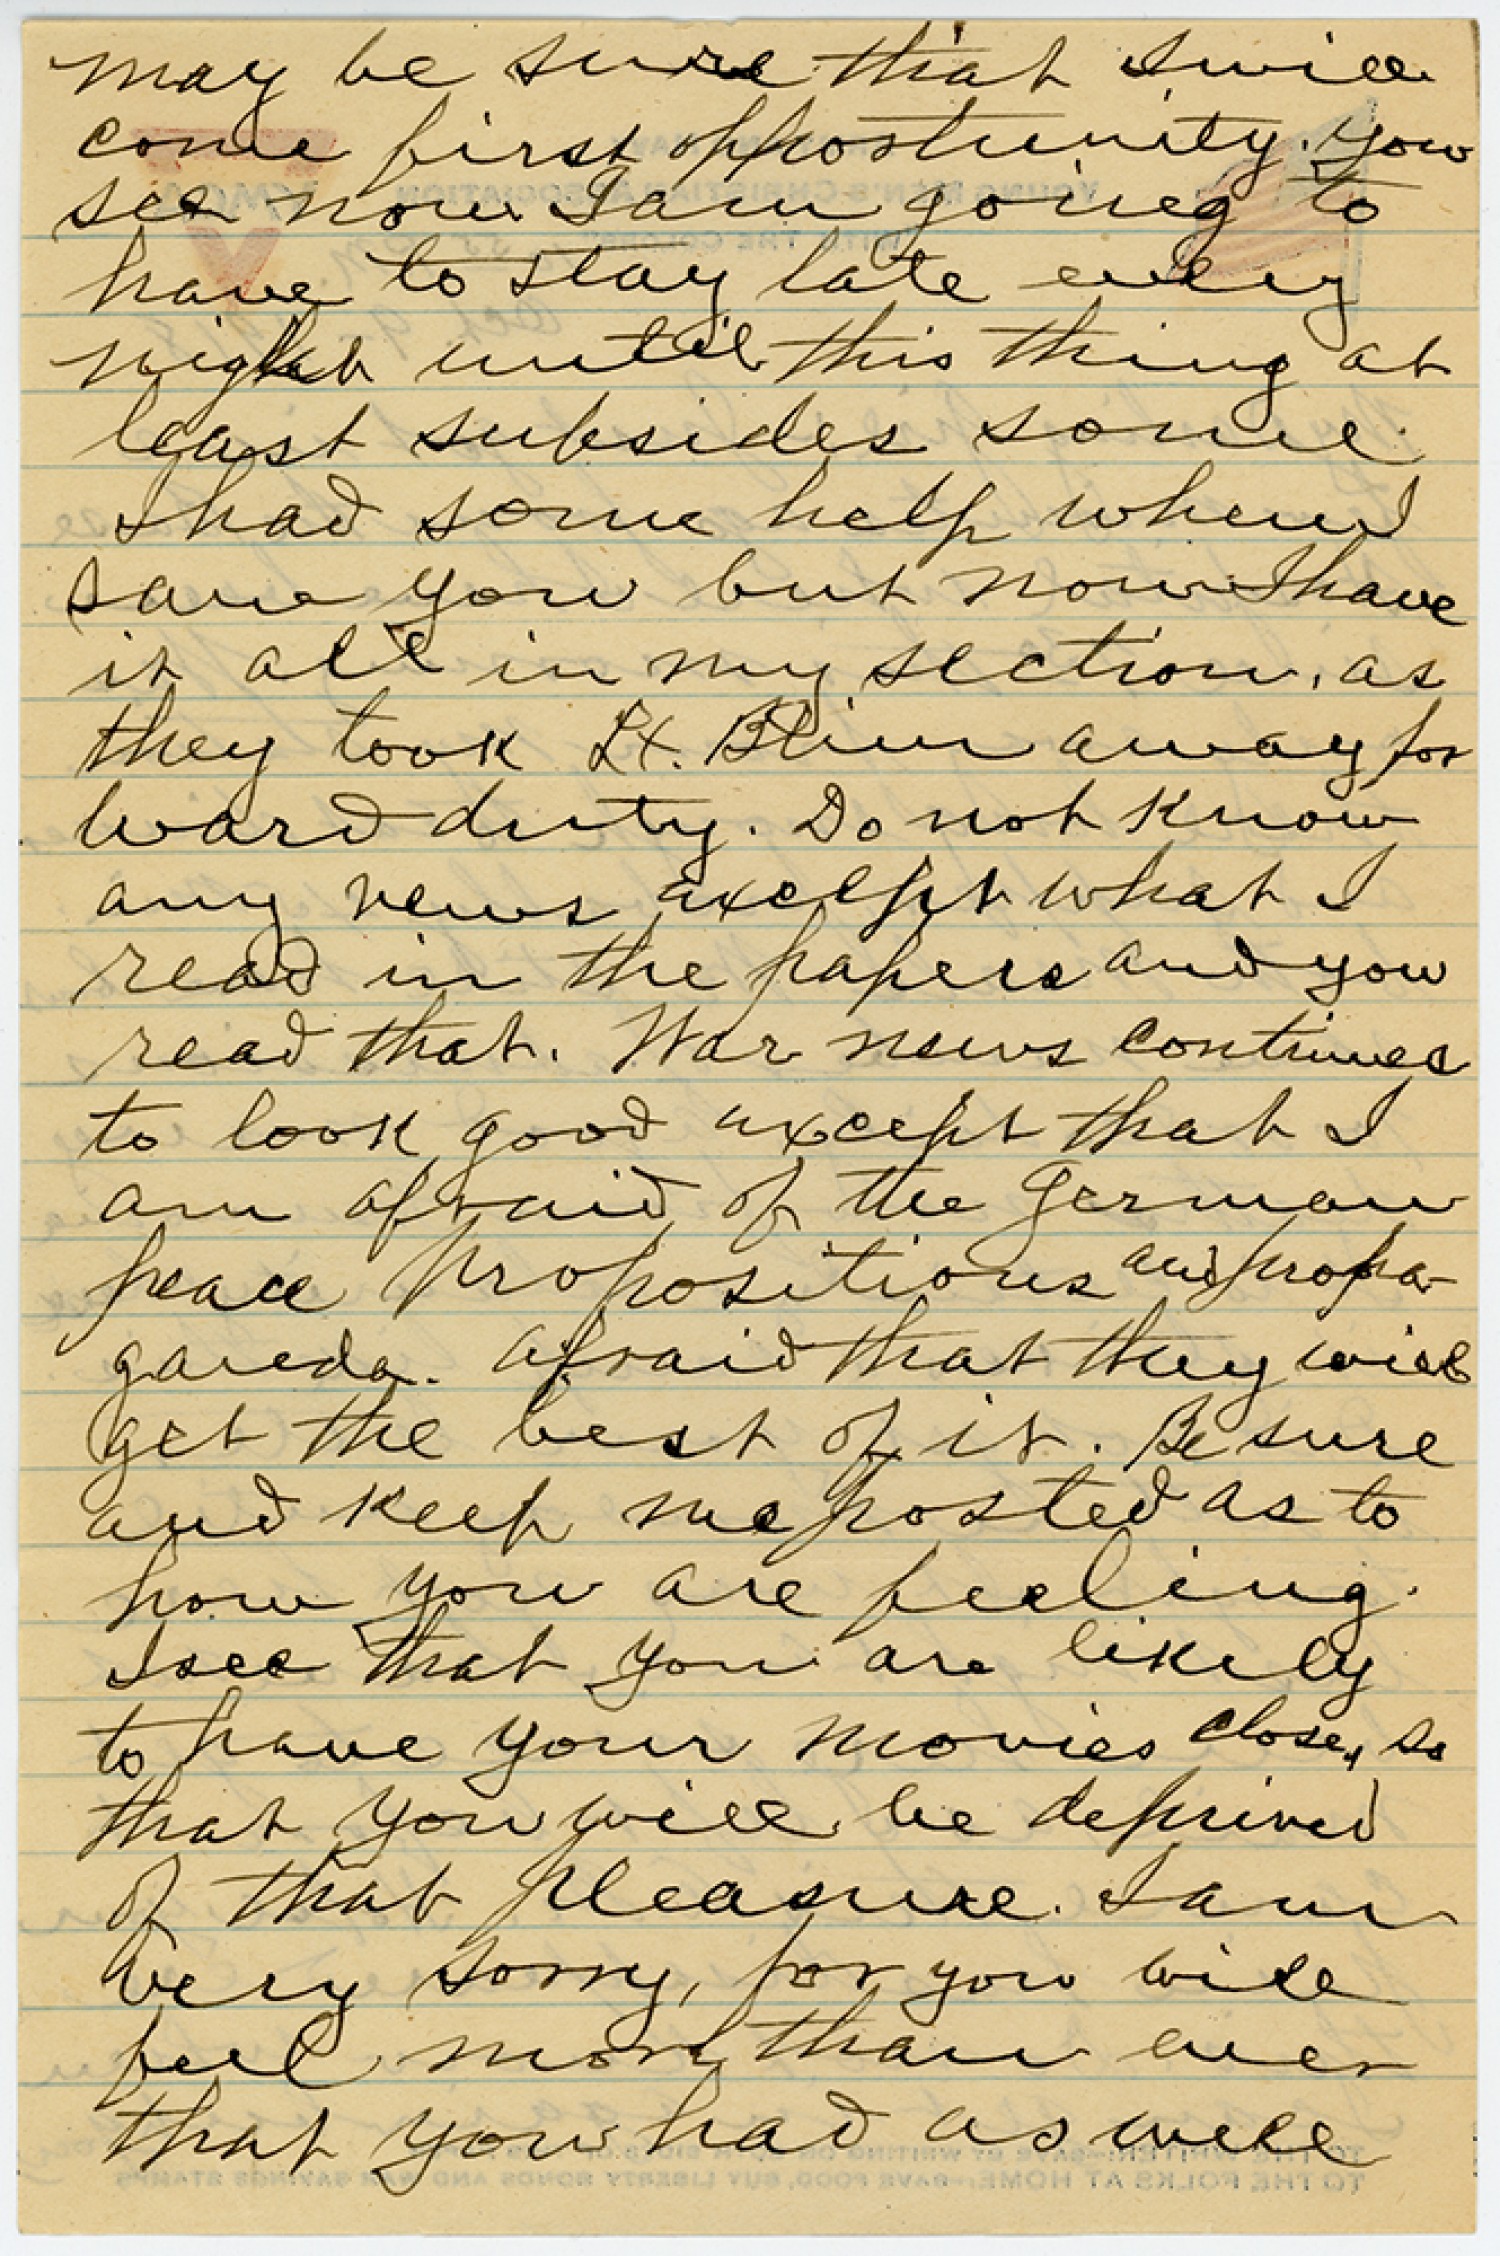 may be sure that I will
come first opportunity. You
see now I am going to
have to stay late every
night until this thing at
least subsides some.
I had some help when I
saw you but now I have
it all in my section, as
they took Lt. Blim away for
ward duty. Do not know
any news except what I
read in the papers and you
read that. War news continues
to look good except that I
am afraid of the German
peace propositions and propa-
ganda. Afraid that they will
get the best of it. Be sure
and keep me posted as to
how you are feeling.
I see that you are likely
to have your movies close, so
that you will be deprived
of that pleasure. I am
very sorry, for you will
feel more than ever
that you had as well